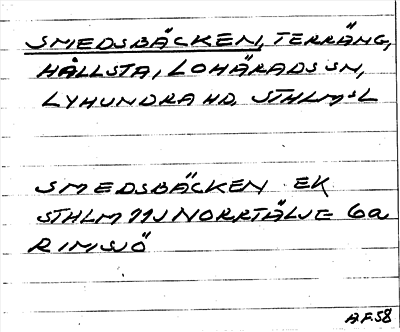 SMEDSBÄCKEN, TERRÄNG,
HÅLLSTA, LOHÄRADS SN,
LYHUNDRA HD, STHLMS L
SMEDSBÄCKEN EK
STHLM 11J NORRTÄLJE 6a
RIMSJÖ
A.F.58